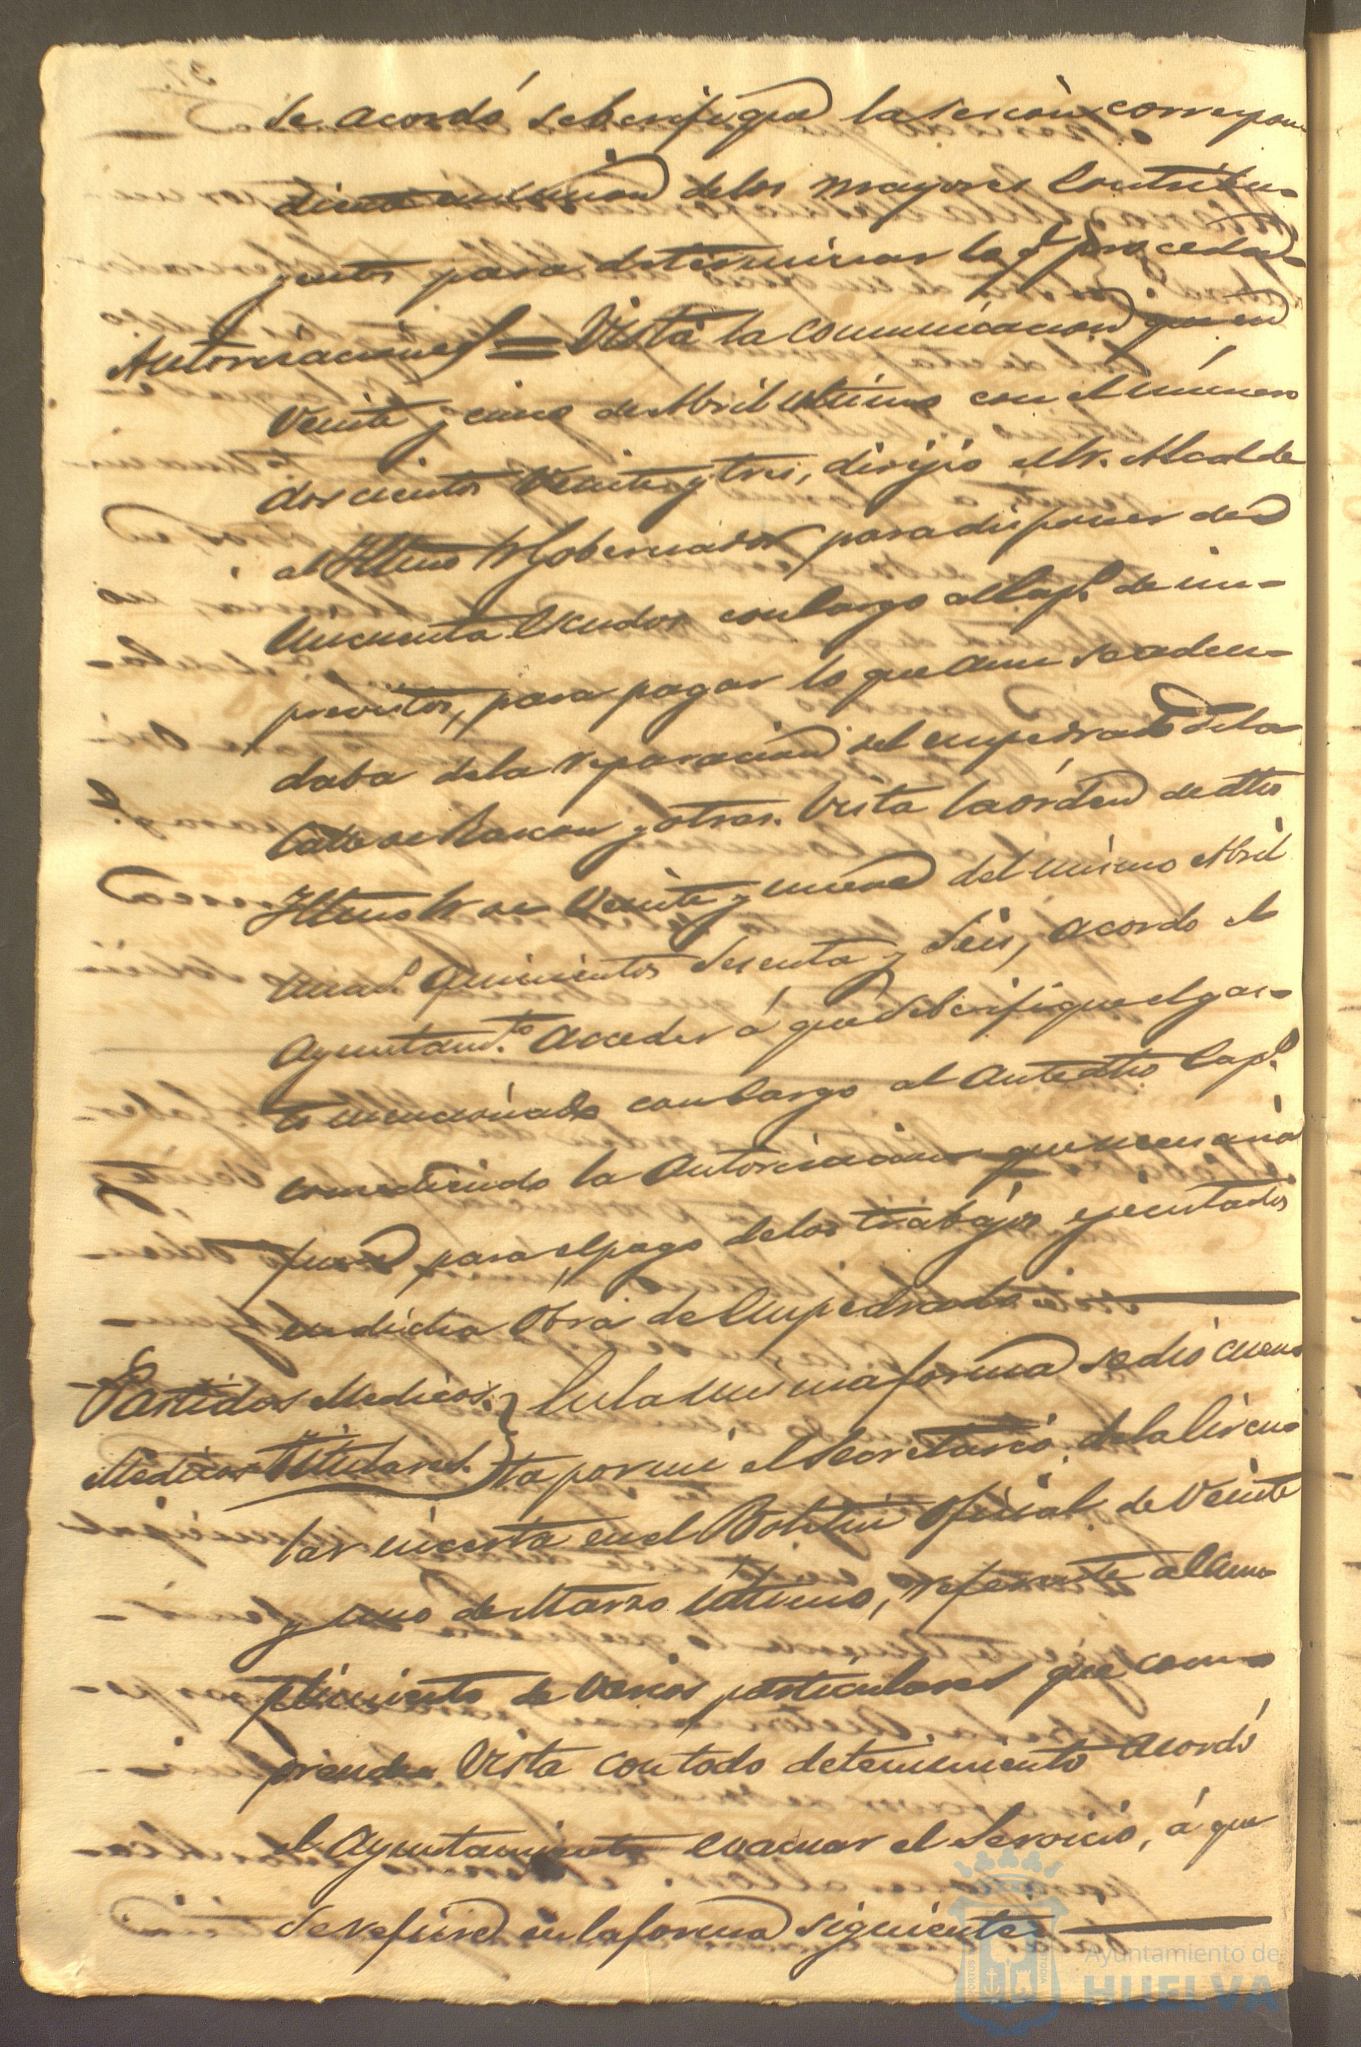 se acordó seberifique la sesion correspon
diente en union delos mayores Contribu-
yentes para determinar lo q.e proceda.
Autorisaciones = Vista la comunicacion que en
Veinte y cinco de Abril ultimo con el número
doscientos Veinte y tres, dirijió el Sr. Alcalde
al Iltmo Sr Gobernador para disponer de
Cincuenta Escudos con cargo al Cap.o de im-
previstos, para pagar lo que aun se adeu-
daba dela reparacion del empedrado dela
Calle de Rascon y otras. Vista la órden de dho
Iltmo Sr de Veinte y nueve del mismo Abril
num.o quinientos Sesenta y Seis, acordo el
Ayuntam.to acceder á que se berifique el gas-
to mencionado con cargo al antedho Cap.o
concediendo la autorisacion que necesaria
fuere para el pago delos trabajos ejecutados
en dicha Obra de Empedrado.
Partidos Medicos.
Medicos Titulares.
En la misma forma se dió cuen
ta por mi el Secretario, de la Circu
lar inserta en el Boletin Oficial de Veinte
y uno de Marzo último, referente al Cum
plimiento de varios particulares que com
prende. Vista con todo detenimiento acordó
el Ayuntamiento evacuar el Servicio, á que
se refiere en la forma siguiente
Ayuntamiento de
HUELVA